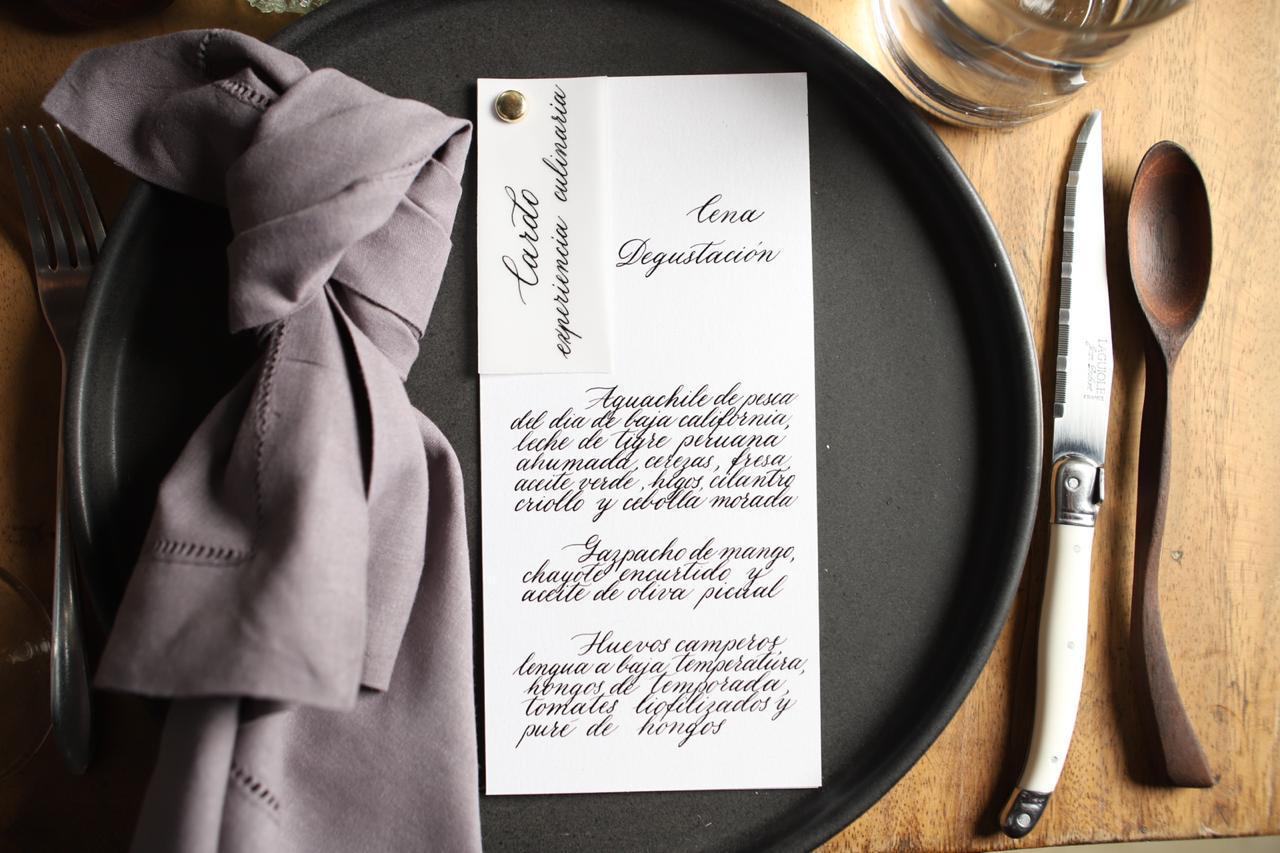 Cardo
experiencia culinaria
Cena
Degustación
Aguachile de pesca
del dia de baja california,
leche de tigre peruana
ahumada, cerezas, fresa,
aceite verde, higos, cilantro
criollo y cebolla morada
Gazpacho de mango,
chayote encurtido y
aceite de oliva picual
Huevos camperos,
lengua a baja temperatura,
hongos de temporada,
tomates liofilizados y
puré de hongos
LAGUIOLE